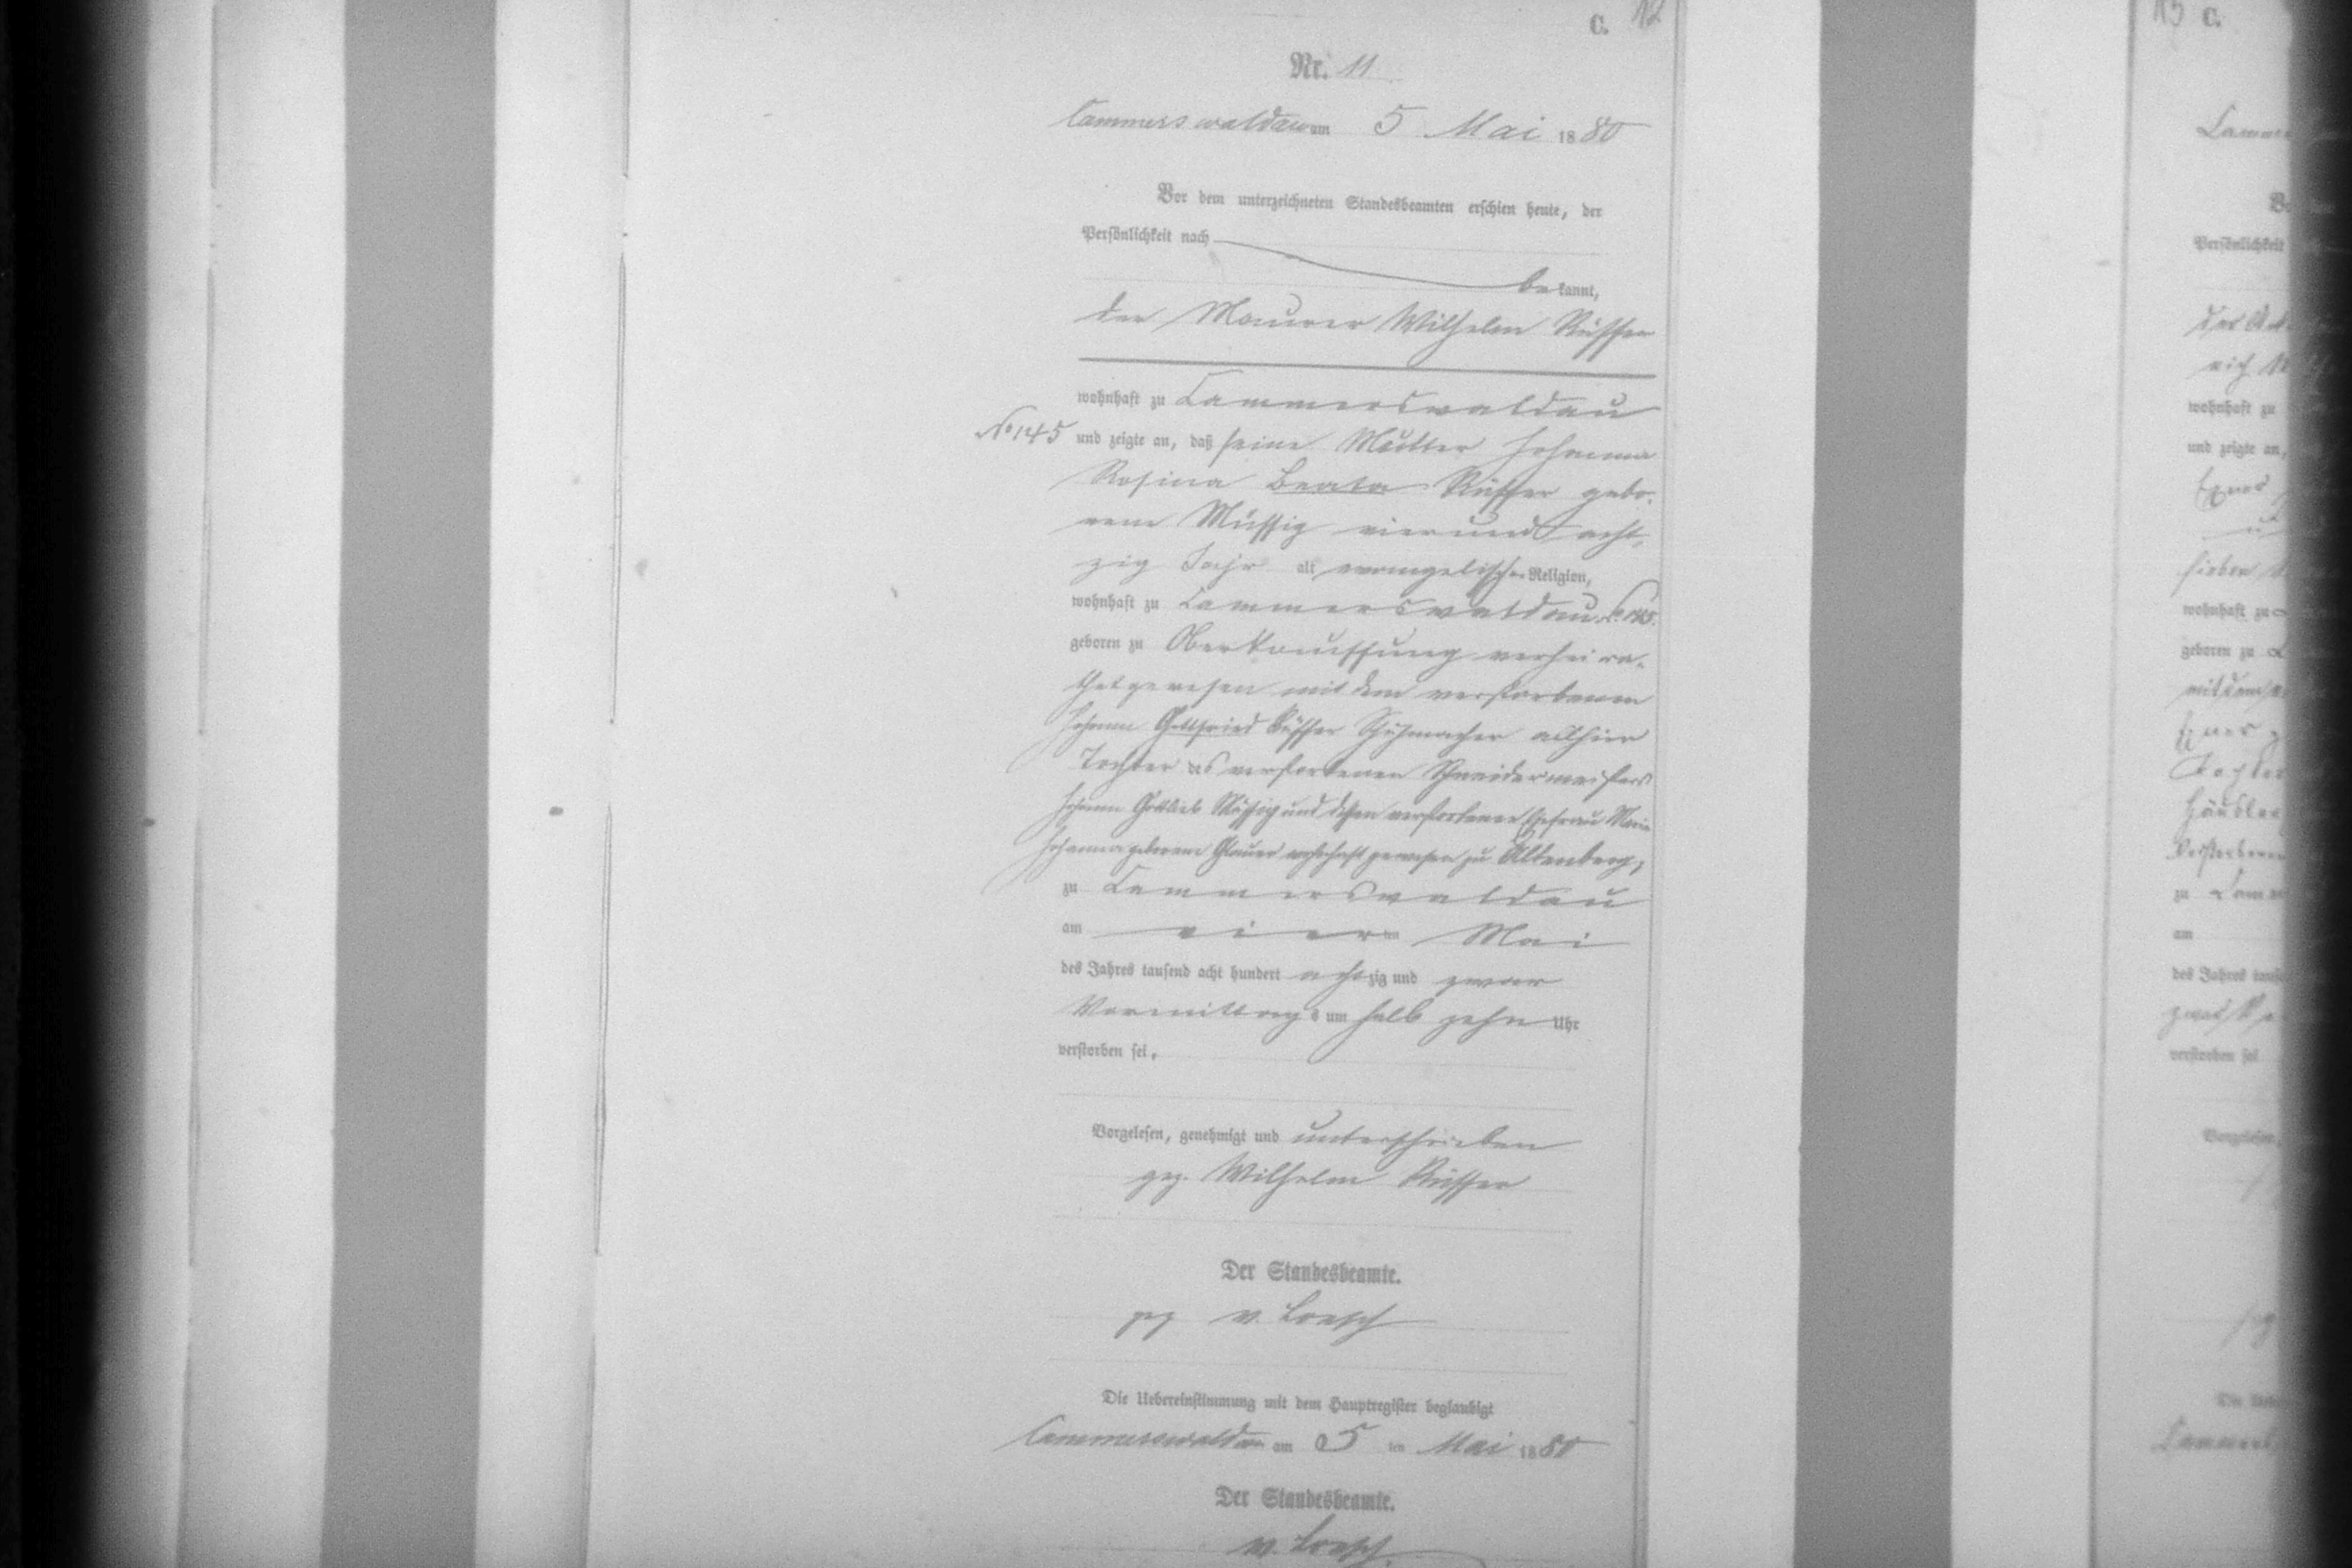 C. 12
Nr. 11
Cammerswaldau am 5 Mai 1880
Vor dem unterzeichneten Standesbeamten erschien heute, der
Persönlichkeit nach
bekannt,
der Maurer Wilhelm Rüffer
wohnhaft zu Cammerswaldau
No 145 und zeigte an, daß seine Mutter Johanna
Rosina Beata Rüffer gebo-
rene Müssig vierundacht-
zig Jahr alt evangelischer Religion,
wohnhaft zu Cammerswaldau No 145.
geboren zu Oberkauffung verheira-
thet gewesen mit dem verstorbenen
Johann Gottfried Rüffer Schuhmacher allhier
Tochter des verstorbenen Schneidermeisters
Johann Gottlieb Müssig und dessen verstorbener Ehefrau Maria
Johanna geborene Glauer wohnhaft gewesen zu Altenberg,
zu Cammerswaldau
am vierten Mai
des Jahres tausend acht hundert achtzig und zwar
Vormittags um halb zehn Uhr
verstorben sei.
Vorgelesen, genehmigt und unterschrieben
gez. Wilhelm Rüffer
Der Standesbeamte.
gez v. Loesch
Die Uebereinstimmung mit dem Hauptregister beglaubigt
Cammerswaldau am 5 ten Mai 1880
Der Standesbeamte.
v. Loesch
C.
Persönlichkeit
wohnhaft zu
und zeigte an,
Exner
sieben
wohnhaft zu
geboren zu
Exner
Tochter
Häusler
zu
am
des Jahres
verstorben sei